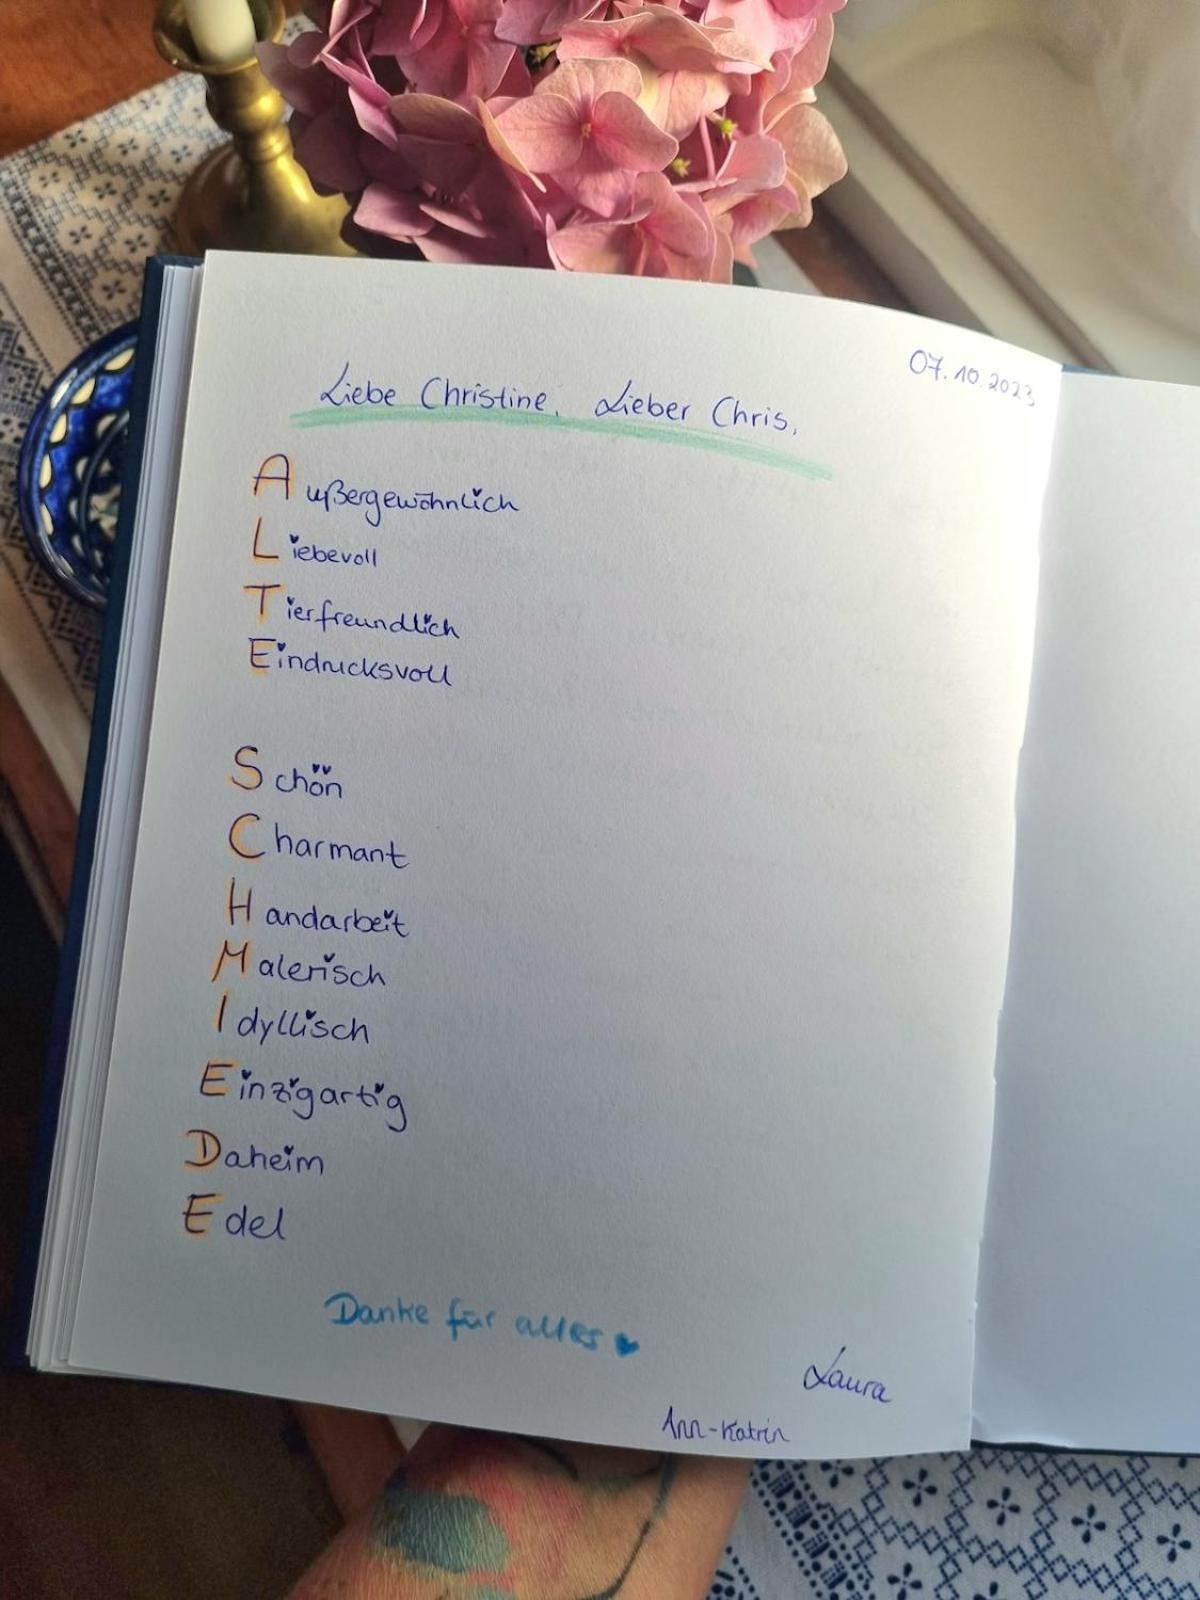 07.10.2023
Liebe Christine, Lieber Chris,
Außergewöhnlich
Liebevoll
Tierfreundlich
Eindrucksvoll
Schön
Charmant
Handarbeit
Malerisch
Idyllisch
Einzigartig
Daheim
Edel
Danke für alles
Laura
Ann-Katrin